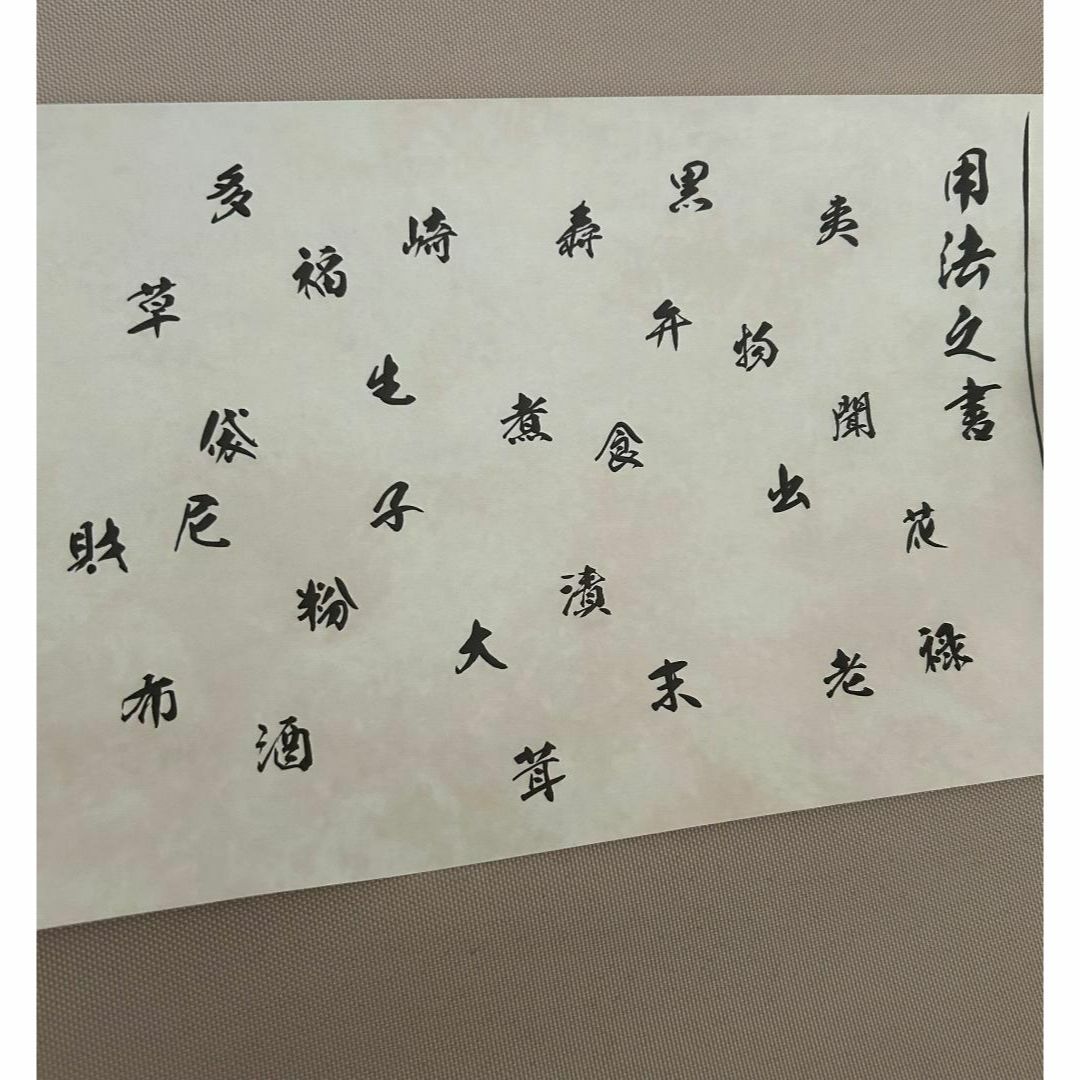 用法之書
夷
聞
花
禄
老
物
出
黒
弁
末
寿
食
漬
茸
煮
大
崎
生
子
福
粉
酒
多
袋
尼
布
草
財